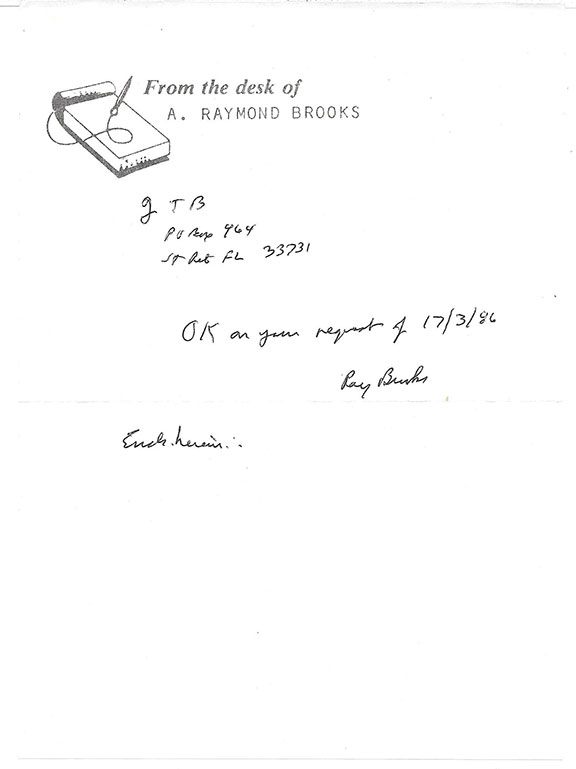 From the desk of
A. RAYMOND BROOKS
g T B
PO Box 464
St Pet FL 33731
OK on your request of 17/3/86
Ray Brooks
Encls. herein:.